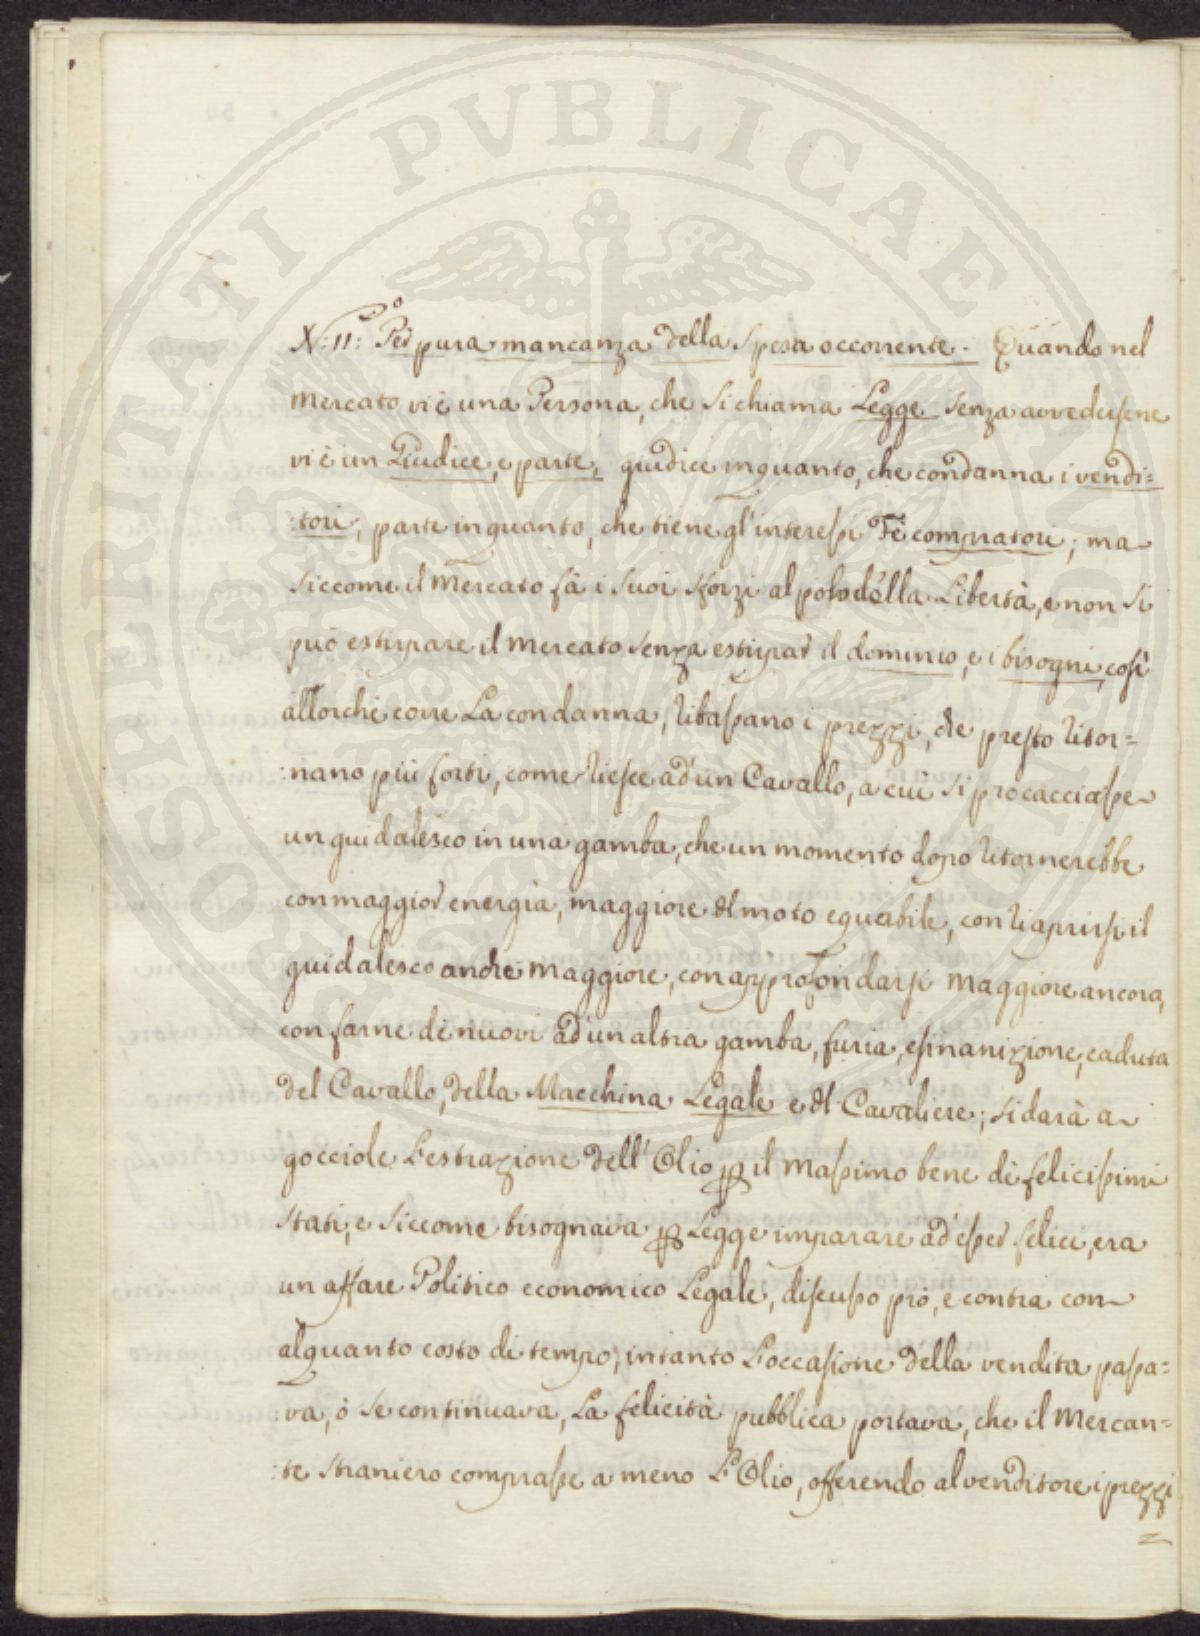 PROSPERITATI PUBLICAE AUGENDAE
N.º 11: Per pura mancanza della spesa occorrente. Quando nel
Mercato vi è una Persona, che si chiama Legge senza avvedersene
vi è un Giudice, e parte, giudice inquanto, che condanna i vendi=
:tori, parte inquanto, che tiene gl'interessi de compratori; ma
siccome il Mercato fà i suoi sforzi al polo della Libertà, e non si
può estirpare il mercato senza estirpar il dominio, e i bisogni, così
allorche corre La condanna, ribassano i prezzi, che presto ritor=
:nano più forti, come riesce ad un Cavallo, a cui si procacciasse
un guidalesco in una gamba, che un momento dopo ritornerebbe
con maggior energia, maggiore del moto equabile, con riaprirsi il
guidalesco anche maggiore, con approfondarsi maggiore ancora,
con farne de nuovi ad un altra gamba, furia, esinanizione, caduta
del Cavallo, della Macchina Legale e del Cavaliere; si darà a
gocciole L'estrazione dell'Olio per il Massimo bene de felicissimi
stati, e siccome bisognava per Legge imparare ad esser felici, era
un affare Politico economico Legale, discusso prò, e contra con
alquanto costo di tempo, intanto L'occasione della vendita passa=
:va, ò se continuava, La felicità pubblica portava, che il Mercan=
:te straniero comprasse a meno L'Olio, offerendo al venditore i prezzi
=